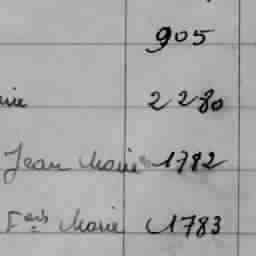 905
2280
Jean Marie 1782
Fçois Marie 1783